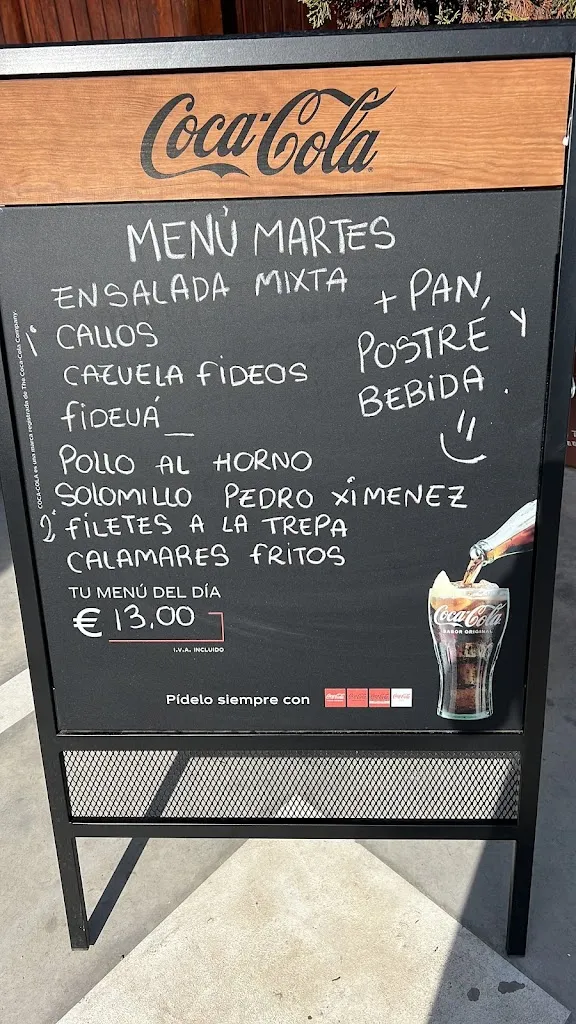 Coca-Cola
MENÚ MARTES
ENSALADA MIXTA
1º CALLOS
CAZUELA FIDEOS
FIDEUÁ
+ PAN,
POSTRE Y
BEBIDA.
POLLO AL HORNO
SOLOMILLO PEDRO XIMENEZ
2º FILETES A LA TREPA
CALAMARES FRITOS
TU MENÚ DEL DÍA
€ 13,00
I.V.A. INCLUIDO
Pídelo siempre con
Coca-Cola
SABOR ORIGINAL
COCA-COLA es una marca registrada de The Coca-Cola Company.